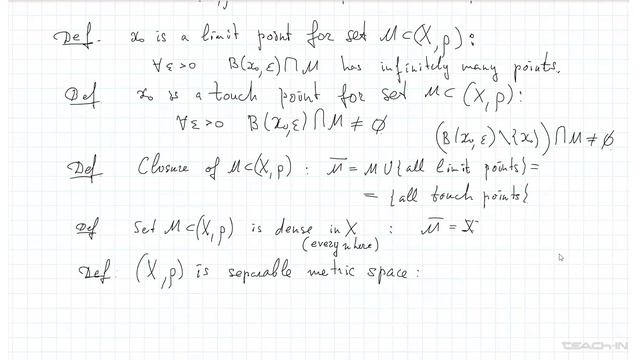 Def. x₀ is a limit point for set M⊂(X,ρ):
∀ε>0 B(x₀,ε)⋂M has infinitely many points.
Def x₀ is a touch point for set M⊂(X,ρ):
∀ε>0 B(x₀,ε)⋂M≠∅
(B(x₀,ε)\{x₀})⋂M≠∅
Def Closure of M⊂(X,ρ): M̅ = M∪{all limit points}=
= {all touch points}
Def Set M⊂(X,ρ) is dense in X : M̅ = X
(everywhere)
Def: (X,ρ) is separable metric space:
TEACH-IN